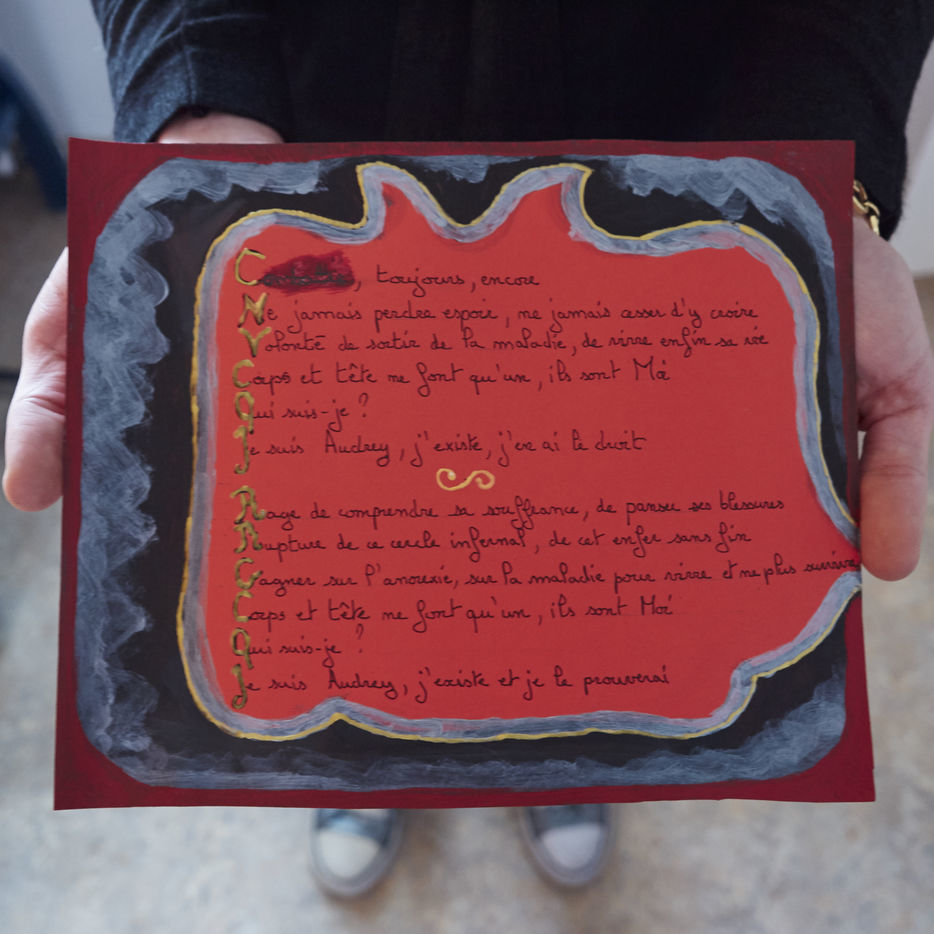 C , toujours, encore
Ne jamais perdre espoir, ne jamais cesser d'y croire
Volonté de sortir de la maladie, de vivre enfin sa vie
Corps et tête ne font qu'un, ils sont Moi
Qui suis-je ?
Je suis Audrey, j'existe, j'en ai le droit
Rage de comprendre sa souffrance, de panser ses blessures
Rupture de ce cercle infernal, de cet enfer sans fin
Gagner sur l'anorexie, sur la maladie pour vivre et ne plus survivre
Corps et tête ne font qu'un, ils sont Moi
Qui suis-je ?
Je suis Audrey, j'existe et je le prouverai